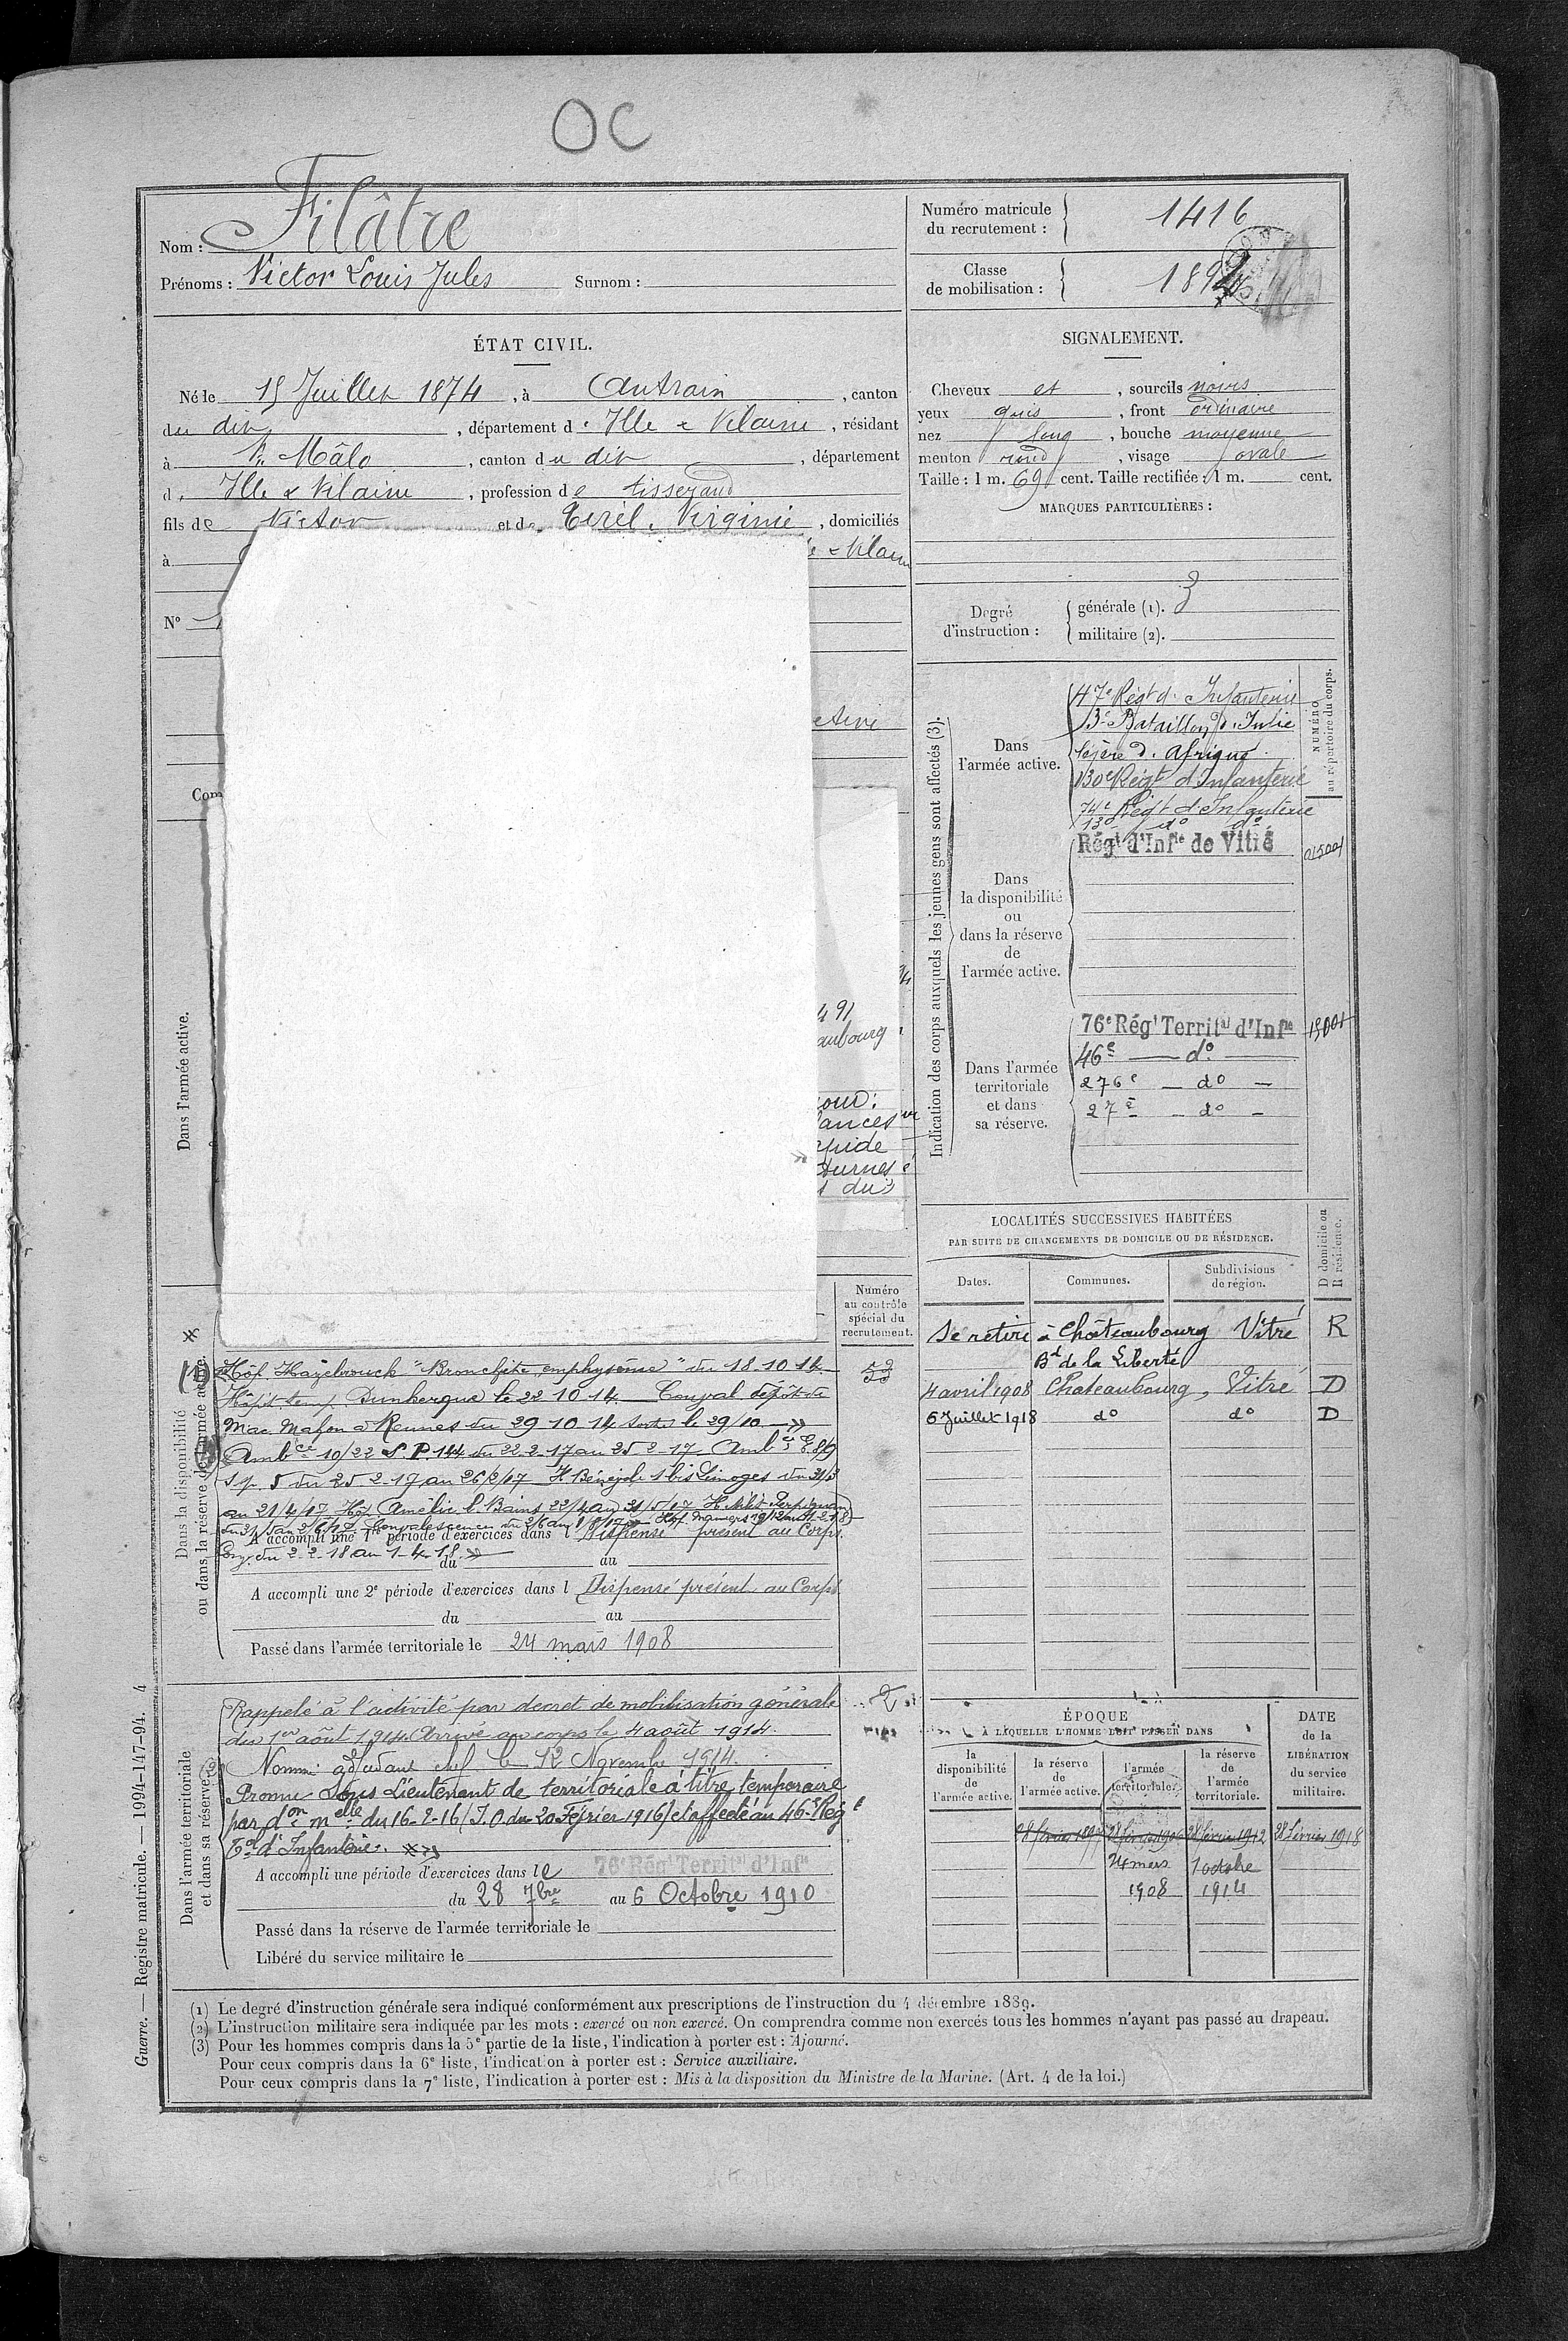 OC
Nom : Filâtre
Prénoms : Victor Louis Jules Surnom :
Numéro matricule du recrutement : 1416
Classe de mobilisation : 1892
ÉTAT CIVIL.
Né le 15 Juillet 1874, à Antrain, canton
du dit, département d'Ille & Vilaine, résidant
à St Mâlo, canton du dit, département
d. Ille & Vilaine, profession de tisserand
fils de Victor et de Tirél. Virginie, domiciliés
à & Vilaine
N°
ctive
Com
491
aubourg
jour:
lances
apide
s du
Dans l'armée active.
SIGNALEMENT.
Cheveux et, sourcils noirs
yeux gris, front ordinaire
nez long, bouche moyenne
menton rond, visage ovale
Taille : 1 m. 69 cent. Taille rectifiée : 1 m. cent.
MARQUES PARTICULIÈRES :
Degré d'instruction :
générale (1). 3
militaire (2).
Indication des corps auxquels les jeunes gens sont affectés (3).
NUMÉRO au répertoire du corps.
Dans l'armée active.
47e Régt d. Infanterie
3e Bataillon d. Inf.ie
légère d. Afrique
130e Régt d'Infanterie
74e Régt d'Infanterie
130 do do
Dans la disponibilité ou dans la réserve de l'armée active.
Régt d'Infie de Vitré
Dans l'armée territoriale et dans sa réserve.
76e Régt Territal d'Infie
46e — do
276e — do —
27e — do —
LOCALITÉS SUCCESSIVES HABITÉES
PAR SUITE DE CHANGEMENTS DE DOMICILE OU DE RÉSIDENCE.
Dates. Communes. Subdivisions de région. D domicile ou R résidence.
Se retire à Châteaubourg Vitré R
Bd de la Liberté
4 avril 1908 Chateaubourg, Vitré D
6 Juillet 1918 do do D
Numéro au contrôle spécial du recrutement.
Dans la disponibilité ou dans la réserve de l'armée active.
Hôp. Hazebrouck "Bronchite emphysème" du 18.10.14
Hôpit temp. Dunkerque le 22 10 14 Conval dépôt de
Mac Mahon à Rennes du 29 10 14 sortie le 29/10
Ambce 10/22 S.P. 144 du 22-2-17 au 25-2-17 Ambce
S.p. 5 du 25 2-17 au 26/2/17 H. Bénévole 1 bis Limoges du 31/3
au 21/4/17 Hop Amélie l. Bains 22/4 au 31/5/17 H. Perpignan
A accompli une 1re période d'exercices dans l Dispensé présent au Corps
Cong. du 2-2-18 au 1-4-18
du au
A accompli une 2e période d'exercices dans l Dispensé présent au Corps
du au
Passé dans l'armée territoriale le 24 mars 1908
Dans l'armée territoriale et dans sa réserve.
Rappelé à l'activité par décret de mobilisation générale
du 1er août 1914 Arrivé au corps le 4 août 1914.
Nommé adjudant chef le 12 Novembre 1914.
Promu Sous Lieutenant de territoriale à titre temporaire
par don melle du 16-2-16 (J.O du 20 Février 1916) et affecté au 46e Régt
Tal d'Infanterie.
A accompli une période d'exercices dans le 76e Régt Territal d'Infie
du 28 7bre au 6 Octobre 1910
Passé dans la réserve de l'armée territoriale le
Libéré du service militaire le
ÉPOQUE
À LAQUELLE L'HOMME DOIT PASSER DANS
DATE de la LIBÉRATION du service militaire.
la disponibilité de l'armée active.
la réserve de l'armée active.
l'armée territoriale.
la réserve de l'armée territoriale.
28 février 1906 28 février 1912 28 février 1918
24 mars 1 octobre
1908 1914
(1) Le degré d'instruction générale sera indiqué conformément aux prescriptions de l'instruction du 4 décembre 1889.
(2) L'instruction militaire sera indiquée par les mots : exercé ou non exercé. On comprendra comme non exercés tous les hommes n'ayant pas passé au drapeau.
(3) Pour les hommes compris dans la 5e partie de la liste, l'indication à porter est : Ajourné.
Pour ceux compris dans la 6e liste, l'indication à porter est : Service auxiliaire.
Pour ceux compris dans la 7e liste, l'indication à porter est : Mis à la disposition du Ministre de la Marine. (Art. 4 de la loi.)
Guerre. — Registre matricule. — 1994-147-94. 4